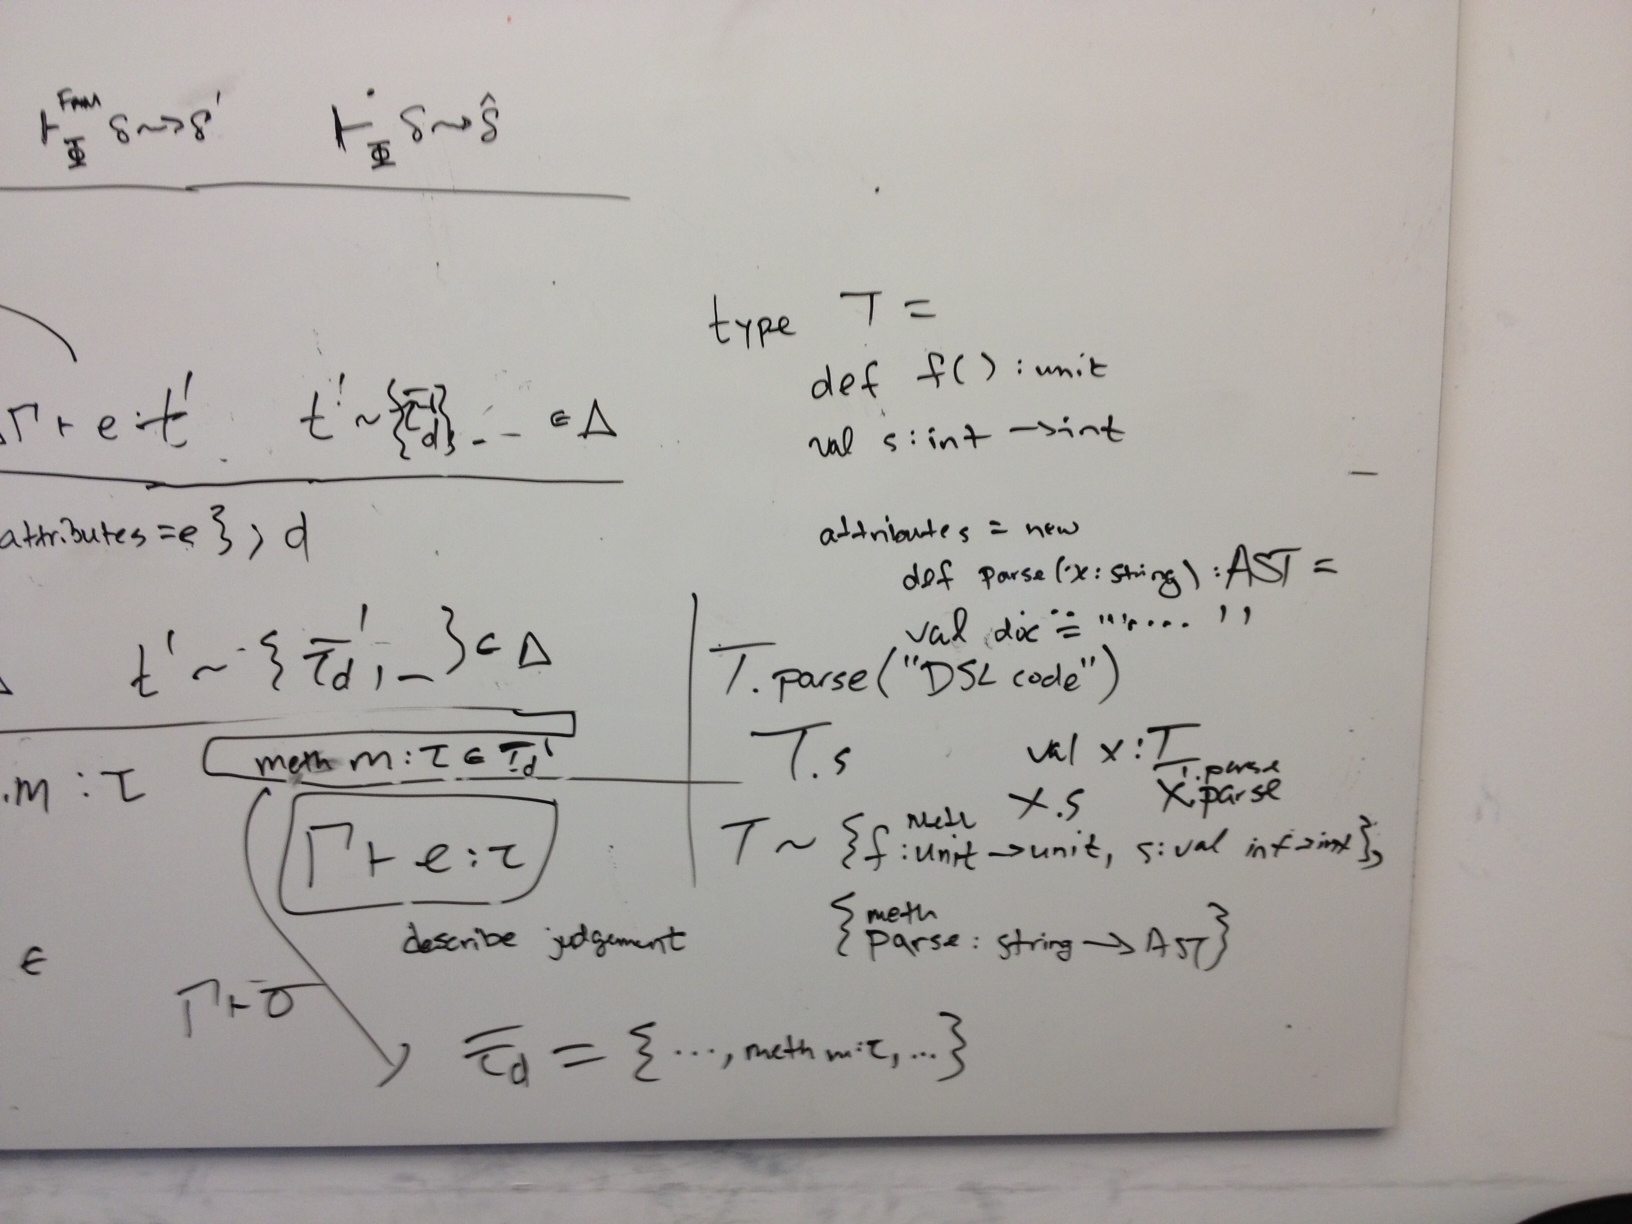 ⊢^FAM_Φ δ ⇝ δ' ⊢_Φ δ ⇝ δ̂
Γ ⊢ e : t' t' ~ , _ ∈ Δ
attributes = e } ; d
t' ~ { τ̄_d' , _ } ∈ Δ
.m : τ meth m : τ ∈ τ̄_d'
Γ ⊢ e : τ
describe judgement
∈
Γ ⊢ σ
τ̄_d = { ..., meth m:τ, ... }
type T =
def f() : unit
val s : int → int
attributes = new
def parse(x : string) : AST =
val doc = "..... "
T.parse("DSL code")
T.s val x : T
T.parse
x.s x.parse
T ~ { meth f : unit → unit, s : val int → int },
{ meth
parse : string → AST }